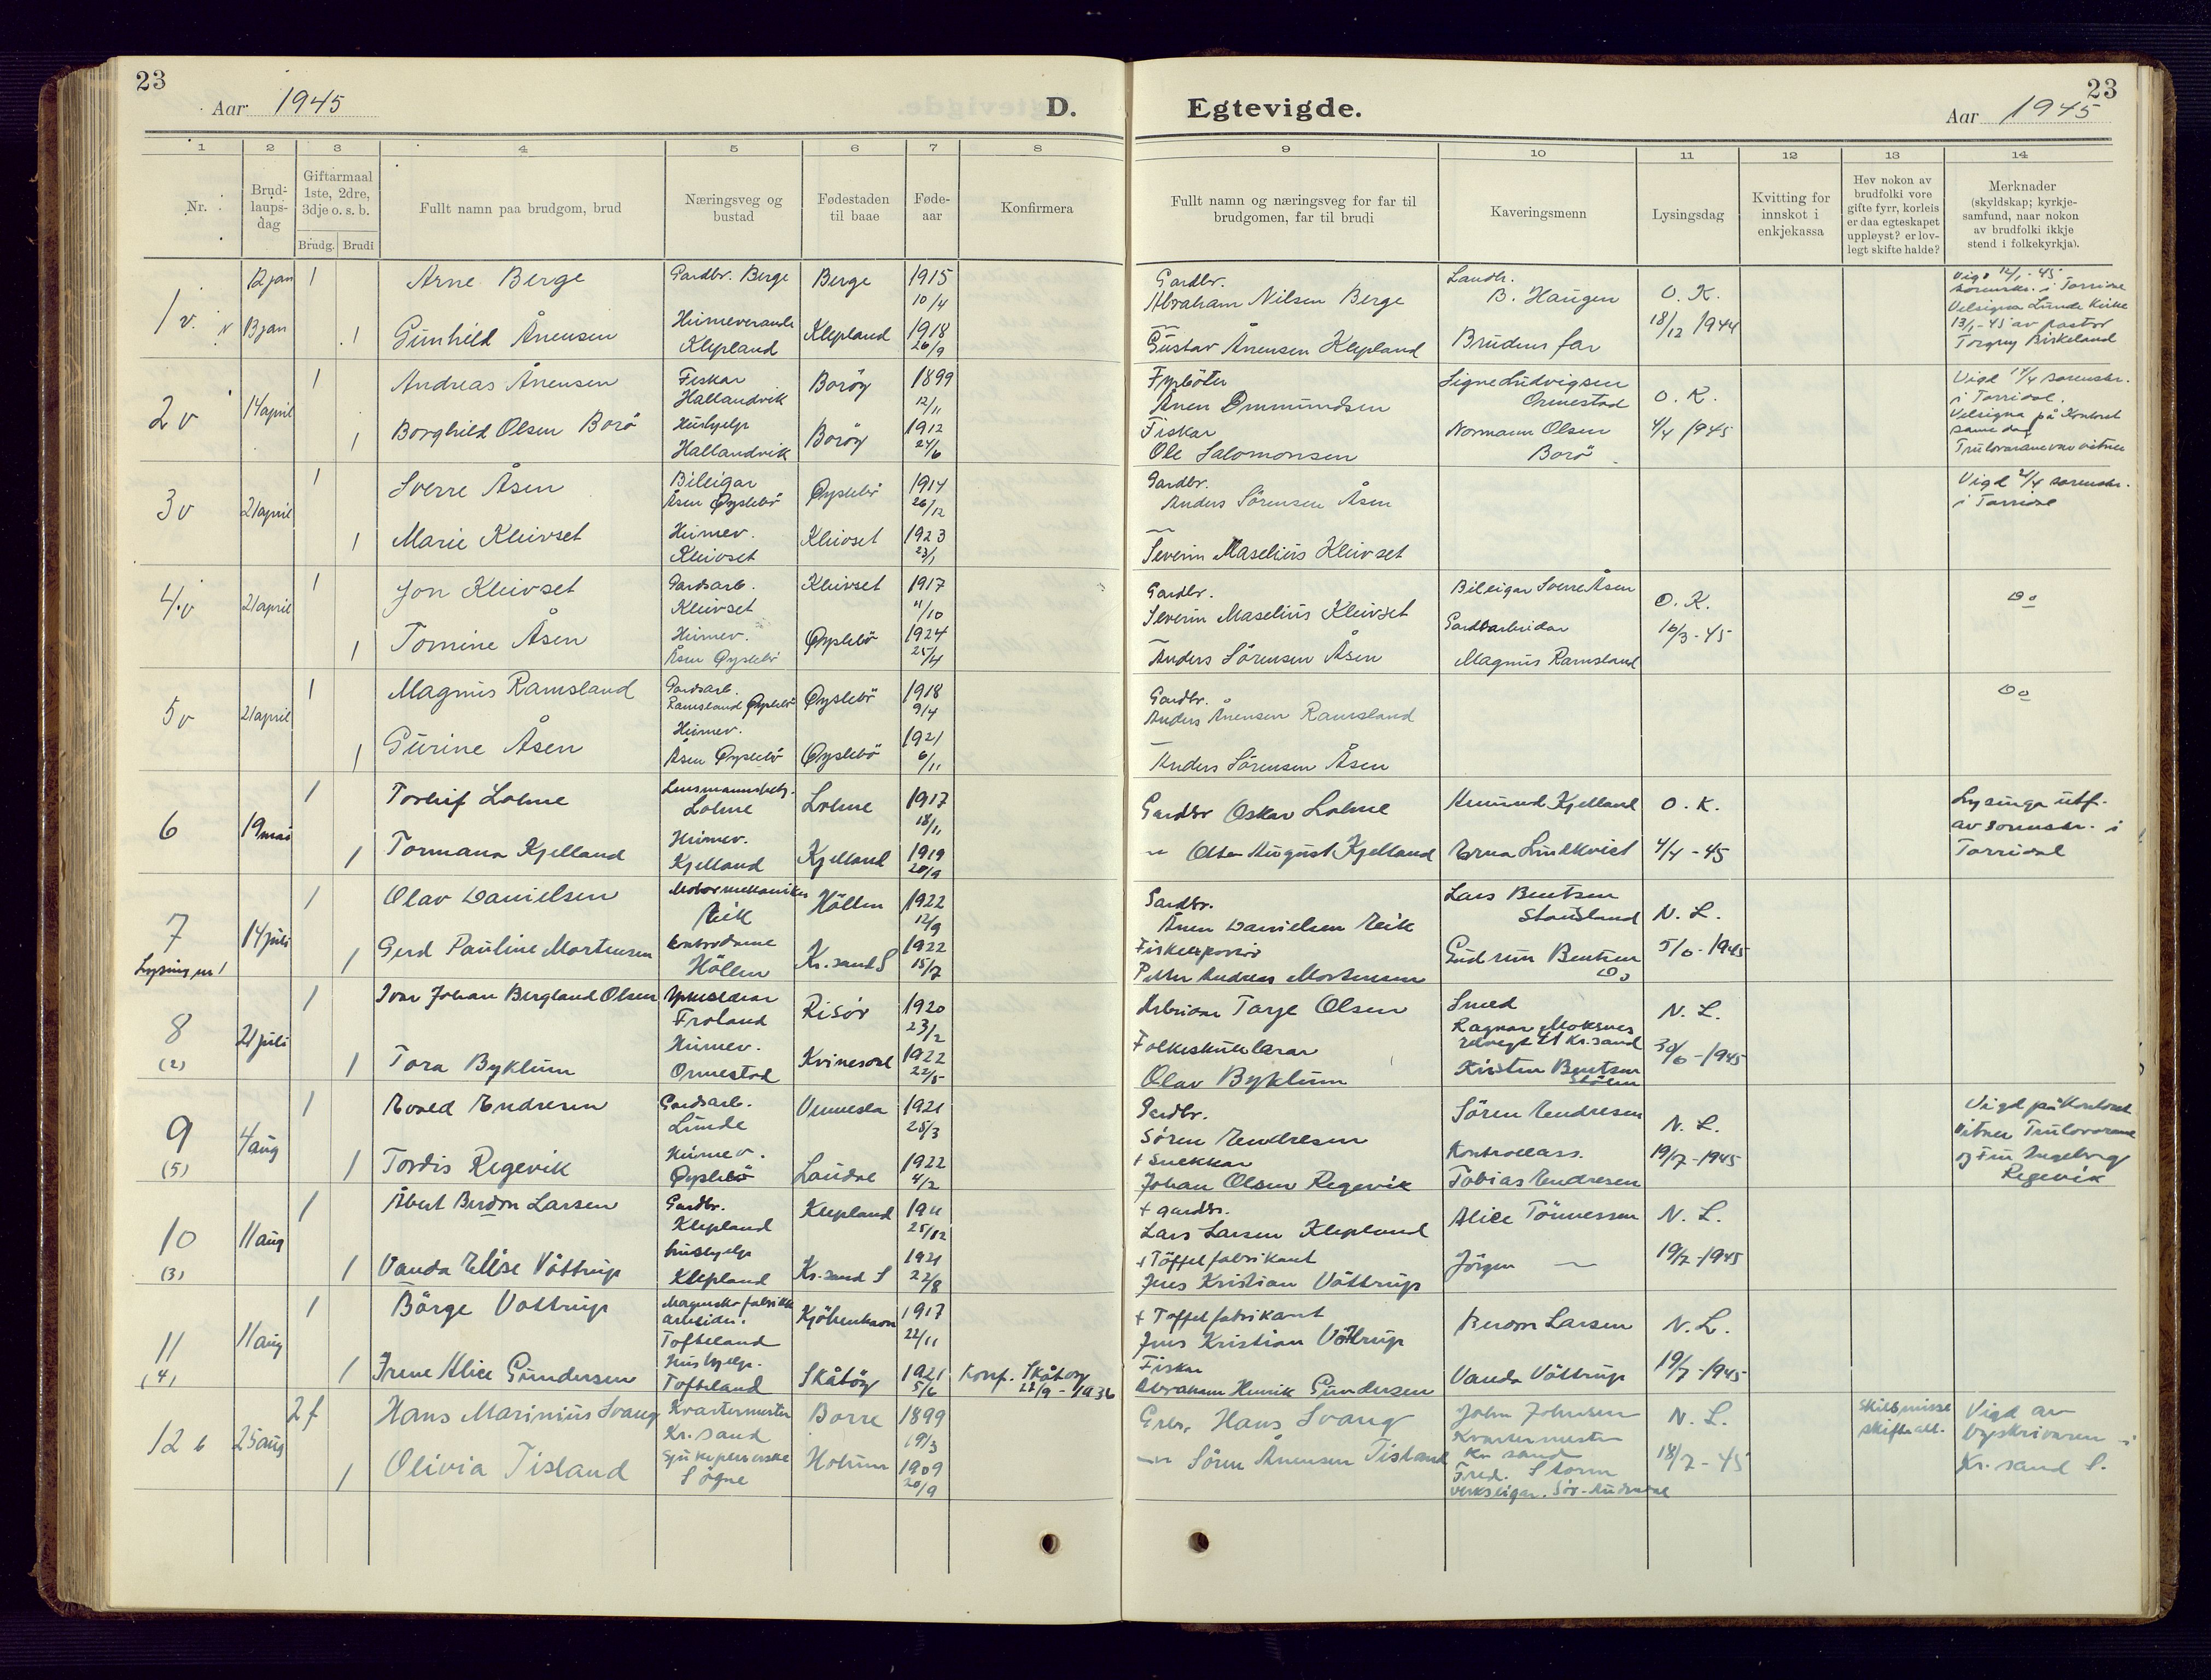 23
Aar 1945
D.
1 2 3 4 5 6 7 8
Nr.
Brud-
laups-
dag
Giftarmaal
1ste, 2dre,
3dje o. s. b.
Brudg. Brudi
Fullt namn paa brudgom, brud
Næringsveg og
bustad
Fødestaden
til baae
Føde-
aar
Konfirmera
1 v. v
12 jan 1 Arne Berge Gardbr. Berge Berge 1915
10/4
13 jan 1 Gunhild Ånensen Heimeverande Klepland 1918
Klepland 26/9
2 v 14 april
1 Andreas Ånensen Fiskar Borøy 1899
Hallandvik 12/11
1 Borghild Olsen Borø Hushjelp Borøy 1912
Hallandvik 24/6
3 v 21 april
1 Sverre Åsen Bileigar Øyslebö 1914
Åsen Øyslebö 26/12
1 Marie Kleivset Heimev. Kleivset 1923
Kleivset 23/1
4. v 21 april
1 Jon Kleivset Gardsarb. Kleivset 1917
Kleivset 11/10
1 Tomine Åsen Heimev. Øyslebö 1924
Åsen Øyslebö 25/4
5 v 21 april
1 Magnus Ramsland Gardsarb. Øyslebö 1918
Ramsland Øyslebö 9/4
1 Gurine Åsen Heimev. Øyslebö 1921
Åsen Øyslebö 6/11
6 19 mai
1 Torleif Lohne Lohne Lohne 1917
18/11
1 Tormana Kjelland Heimev. Kjelland 1919
Kjelland 20/9
7 14 juli
Lysing nr 1
1 Olav Danielsen Motormekaniker Höllen 1922
Eeik 12/9
1 Gerd Pauline Mortensen Kontordame Kr.sand S 1922
Höllen 15/7
8 21 juli
(2)
1 Ivar Johan Bergland Olsen Yrkeslærar Risör 1920
Froland 23/2
1 Tora Byklum Heimev. Kvinesdal 1922
Ormestad 22/5
9 4 aug
(5)
1 Evald Endresen Gardsarb. Vennesla 1921
Lunde 25/3
1 Tordis Regevik Heimev. Laudal 1922
Øyslebö 4/2
10 11 aug
(3)
1 Åbert Berdon Larsen Gardbr. Klepland 1911
Klepland 25/12
1 Vanda Elise Våttrup hushjelp Kr.sand S 1921
Klepland 22/8
11 11 aug
(4)
1 Börge Vottrup fabrikk Kjöbenhavn 1917
arbeider.
Tofteland 22/11
1 Irene Alice Gundersen Hushjelp. Skåtöy 1921 Konf. Skåtöy
Tofteland 5/6 22/9 - 1936
12 b 25 aug
2 f Hans Marinius Svang Kvartermester Borre 1899
Kr. sand 19/3
1 Olivia Tisland Sjukepleierske Holum 1909
Søgne 20/9
23
Egtevigde.
Aar 1945
9 10 11 12 13 14
Fullt namn og næringsveg for far til
brudgomen, far til brudi
Kaveringsmenn
Lysingsdag
Kvitting for
innskot i
enkjekassa
Hev nokon av
brudfolki vore
gifte fyrr, korleis
er daa egteskapet
uppløyst? er lov-
legt skifte halde?
Merknader
(skyldskap; kyrkje-
samfund, naar nokon
av brudfolki ikkje
stend i folkekyrkja).
Gardbr. Landbr. Vigd 12/1 - 45
Abraham Nilsen Berge B. Haugen O. K. sorenskr. i Torridal
— 18/12 1944 Velsigna Lunde kirke
Gustav Ånensen Klepland Brudens far 13/1 - 45 av pastor
Torgny Birkeland
Fyrböter Signe Ludvigsen Vigd 14/4 sorenskr.
Ånen Ommundsen Ormestad O. K. i Torridal.
Fiskar Normann Olsen 4/4 1945 Velsigna på Kontoret
Ole Salomonsen Borö same dag
Trulovarane var vitner
Gardbr. Vigd 21/4 sorenskr.
Anders Sörensen Åsen i Torridal
—
Severin Maselius Kleivset
Gardbr. Bileigar Sverre Åsen O. K. Do
Severin Maselius Kleivset Gardsarbeidar 16/3 - 45
Anders Sörensen Åsen Magnus Ramsland
Gardbr. Do
Anders Ånensen Ramsland
—
Anders Sörensen Åsen
Gardbr Oskar Lohne Amund Kjelland O. K. Lysinga utf.
av sorenskr. i
— Otto August Kjelland Erna Lindkvist 4/4 - 45 Torridal
Gardbr. Lars Bentsen
Ånen Danielsen Eeik Stausland N. L.
Fiskeeksportör Gudrun Bentsen 5/6 - 1945
Petter Andreas Mortensen Do
Arbeidar Tarje Olsen Smed N. L.
Ragnar Moksnes
Folkeskulelærar Kr.sand 30/6 - 1945
Olav Byklum Kirsten Bentsen
Gardbr. Sören Endresen N. L. Vigd på Kontoret
Sören Endresen vitner Trulovarane
+ Snekkar Kontrollass. 19/7 - 1945 og Fru Ingeborg
Johan Olsen Regevik Tobias Endresen Regevik
+ gardbr. Alice Tönnessen N. L.
Lars Larsen Klepland
+ Töffelfabrikant Jörgen — 19/7 - 1945
Jens Kristian Våttrup
+ Töffelfabrikant Berdon Larsen N. L.
Jens Kristian Våttrup
Fiskar Vanda Våttrup 19/7 - 1945
Abraham Henrik Gundersen
Grbr. Hans Svang John Johnsen N. L. Skilsmisse Vigd av
Kvartermester skifte alt. byskrivaren i
— Sören Ånensen Tisland Kr sand 18/7 - 45 Kr. sand S.
Fred. Storm
verkseigar. Sör-Audnedal